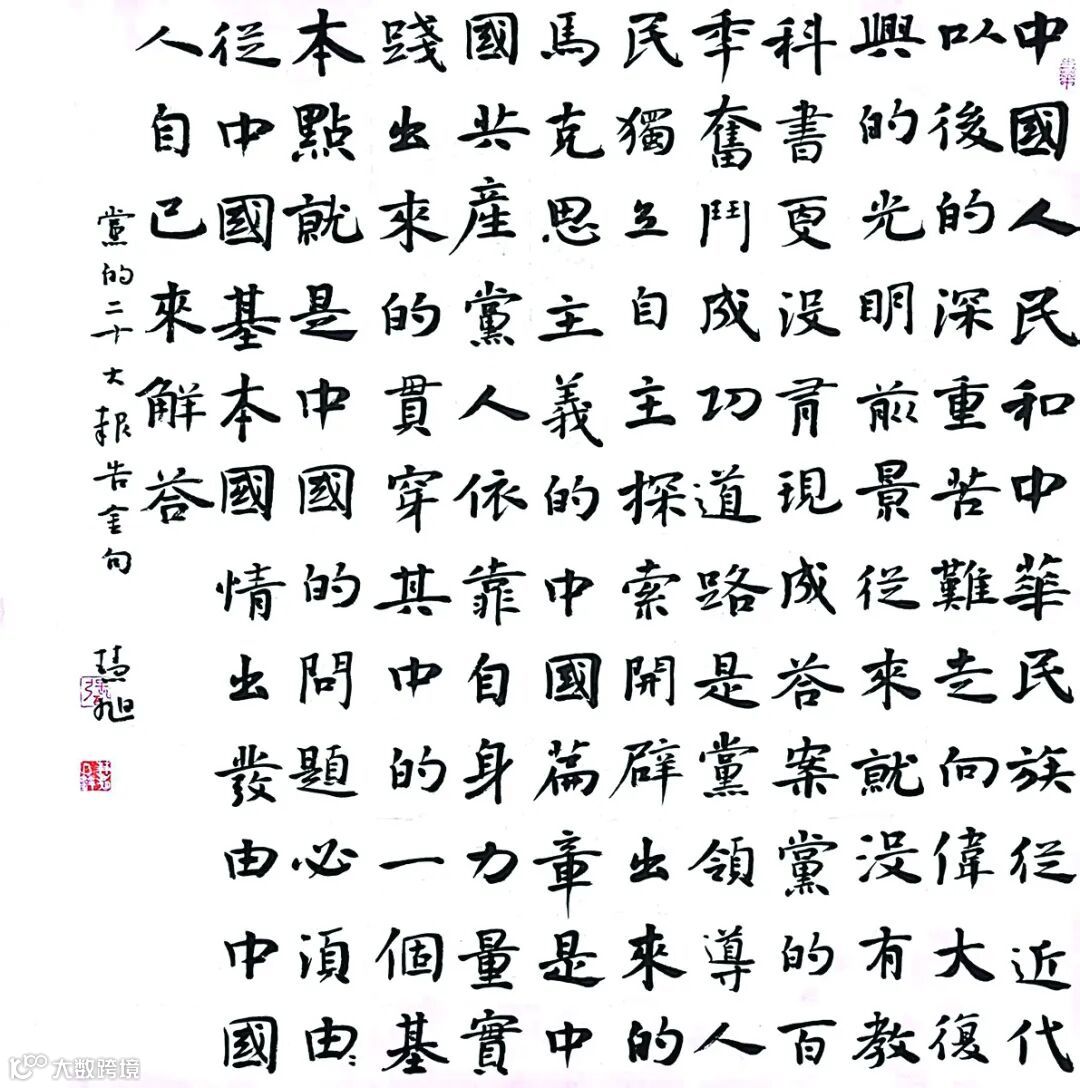 中國人民和中華民族從近代
以後的深重苦難走向偉大復
興的光明前景從來就沒有教
科書更沒有現成答案黨的百
年奮鬥成功道路是黨領導人
民獨立自主探索開辟出來的
馬克思主義的中國篇章是中
國共產黨人依靠自身力量實
踐出來的貫穿其中的一個基
本點就是中國的問題必須由
從中國基本國情出發由中國
人自己來解答
黨的二十大報告金句
旭
大数跨境